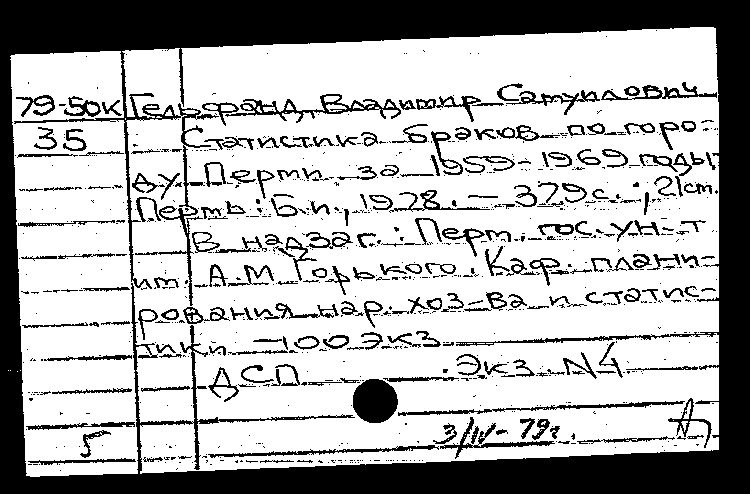 79-50к Гельфанд, Владимир Самуилович
35 Статистика браков по горо-
ду Перми за 1959-1969 годы.
Пермь: Б.и., 1978. — 379с.; 21см.
В надзаг.: Перм. гос. ун-т
им. А.М Горького. Каф. плани-
рования нар. хоз-ва и статис-
тики — 100 экз
ДСП Экз. N4
5 3/IV-79г.